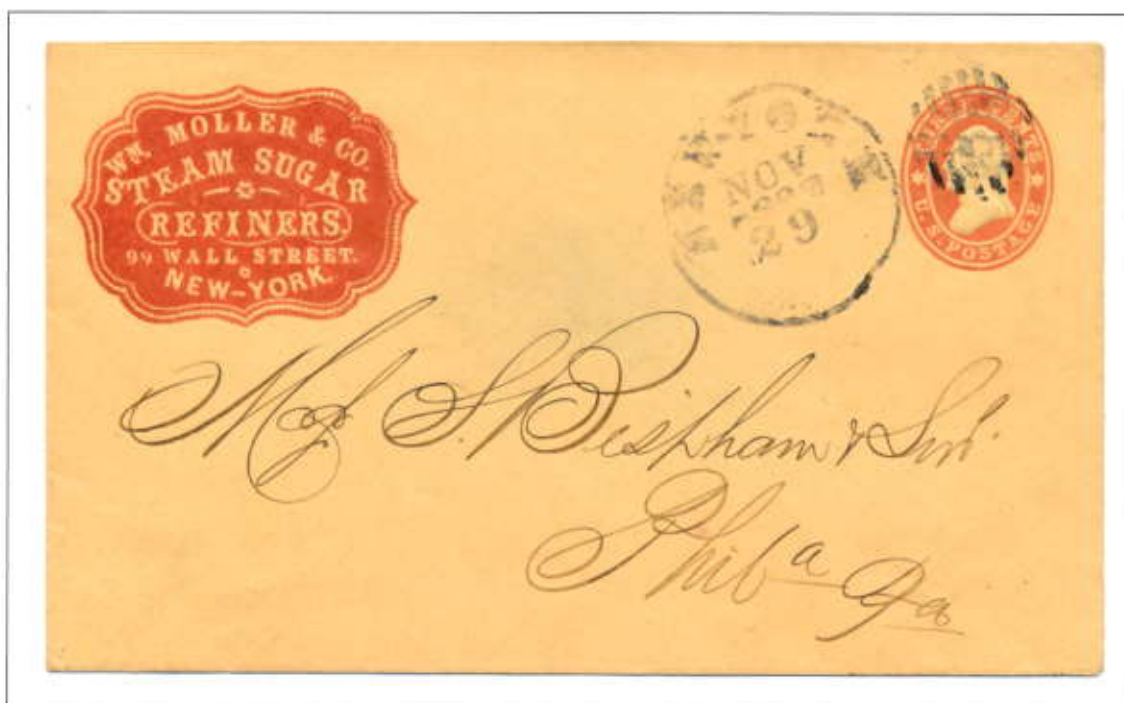 WM. MOLLER & CO.
STEAM SUGAR
REFINERS.
99 WALL STREET.
NEW-YORK.
NEW-YORK
NOV
29
U.S. POSTAGE
S. Bispham & Son
Phila Pa